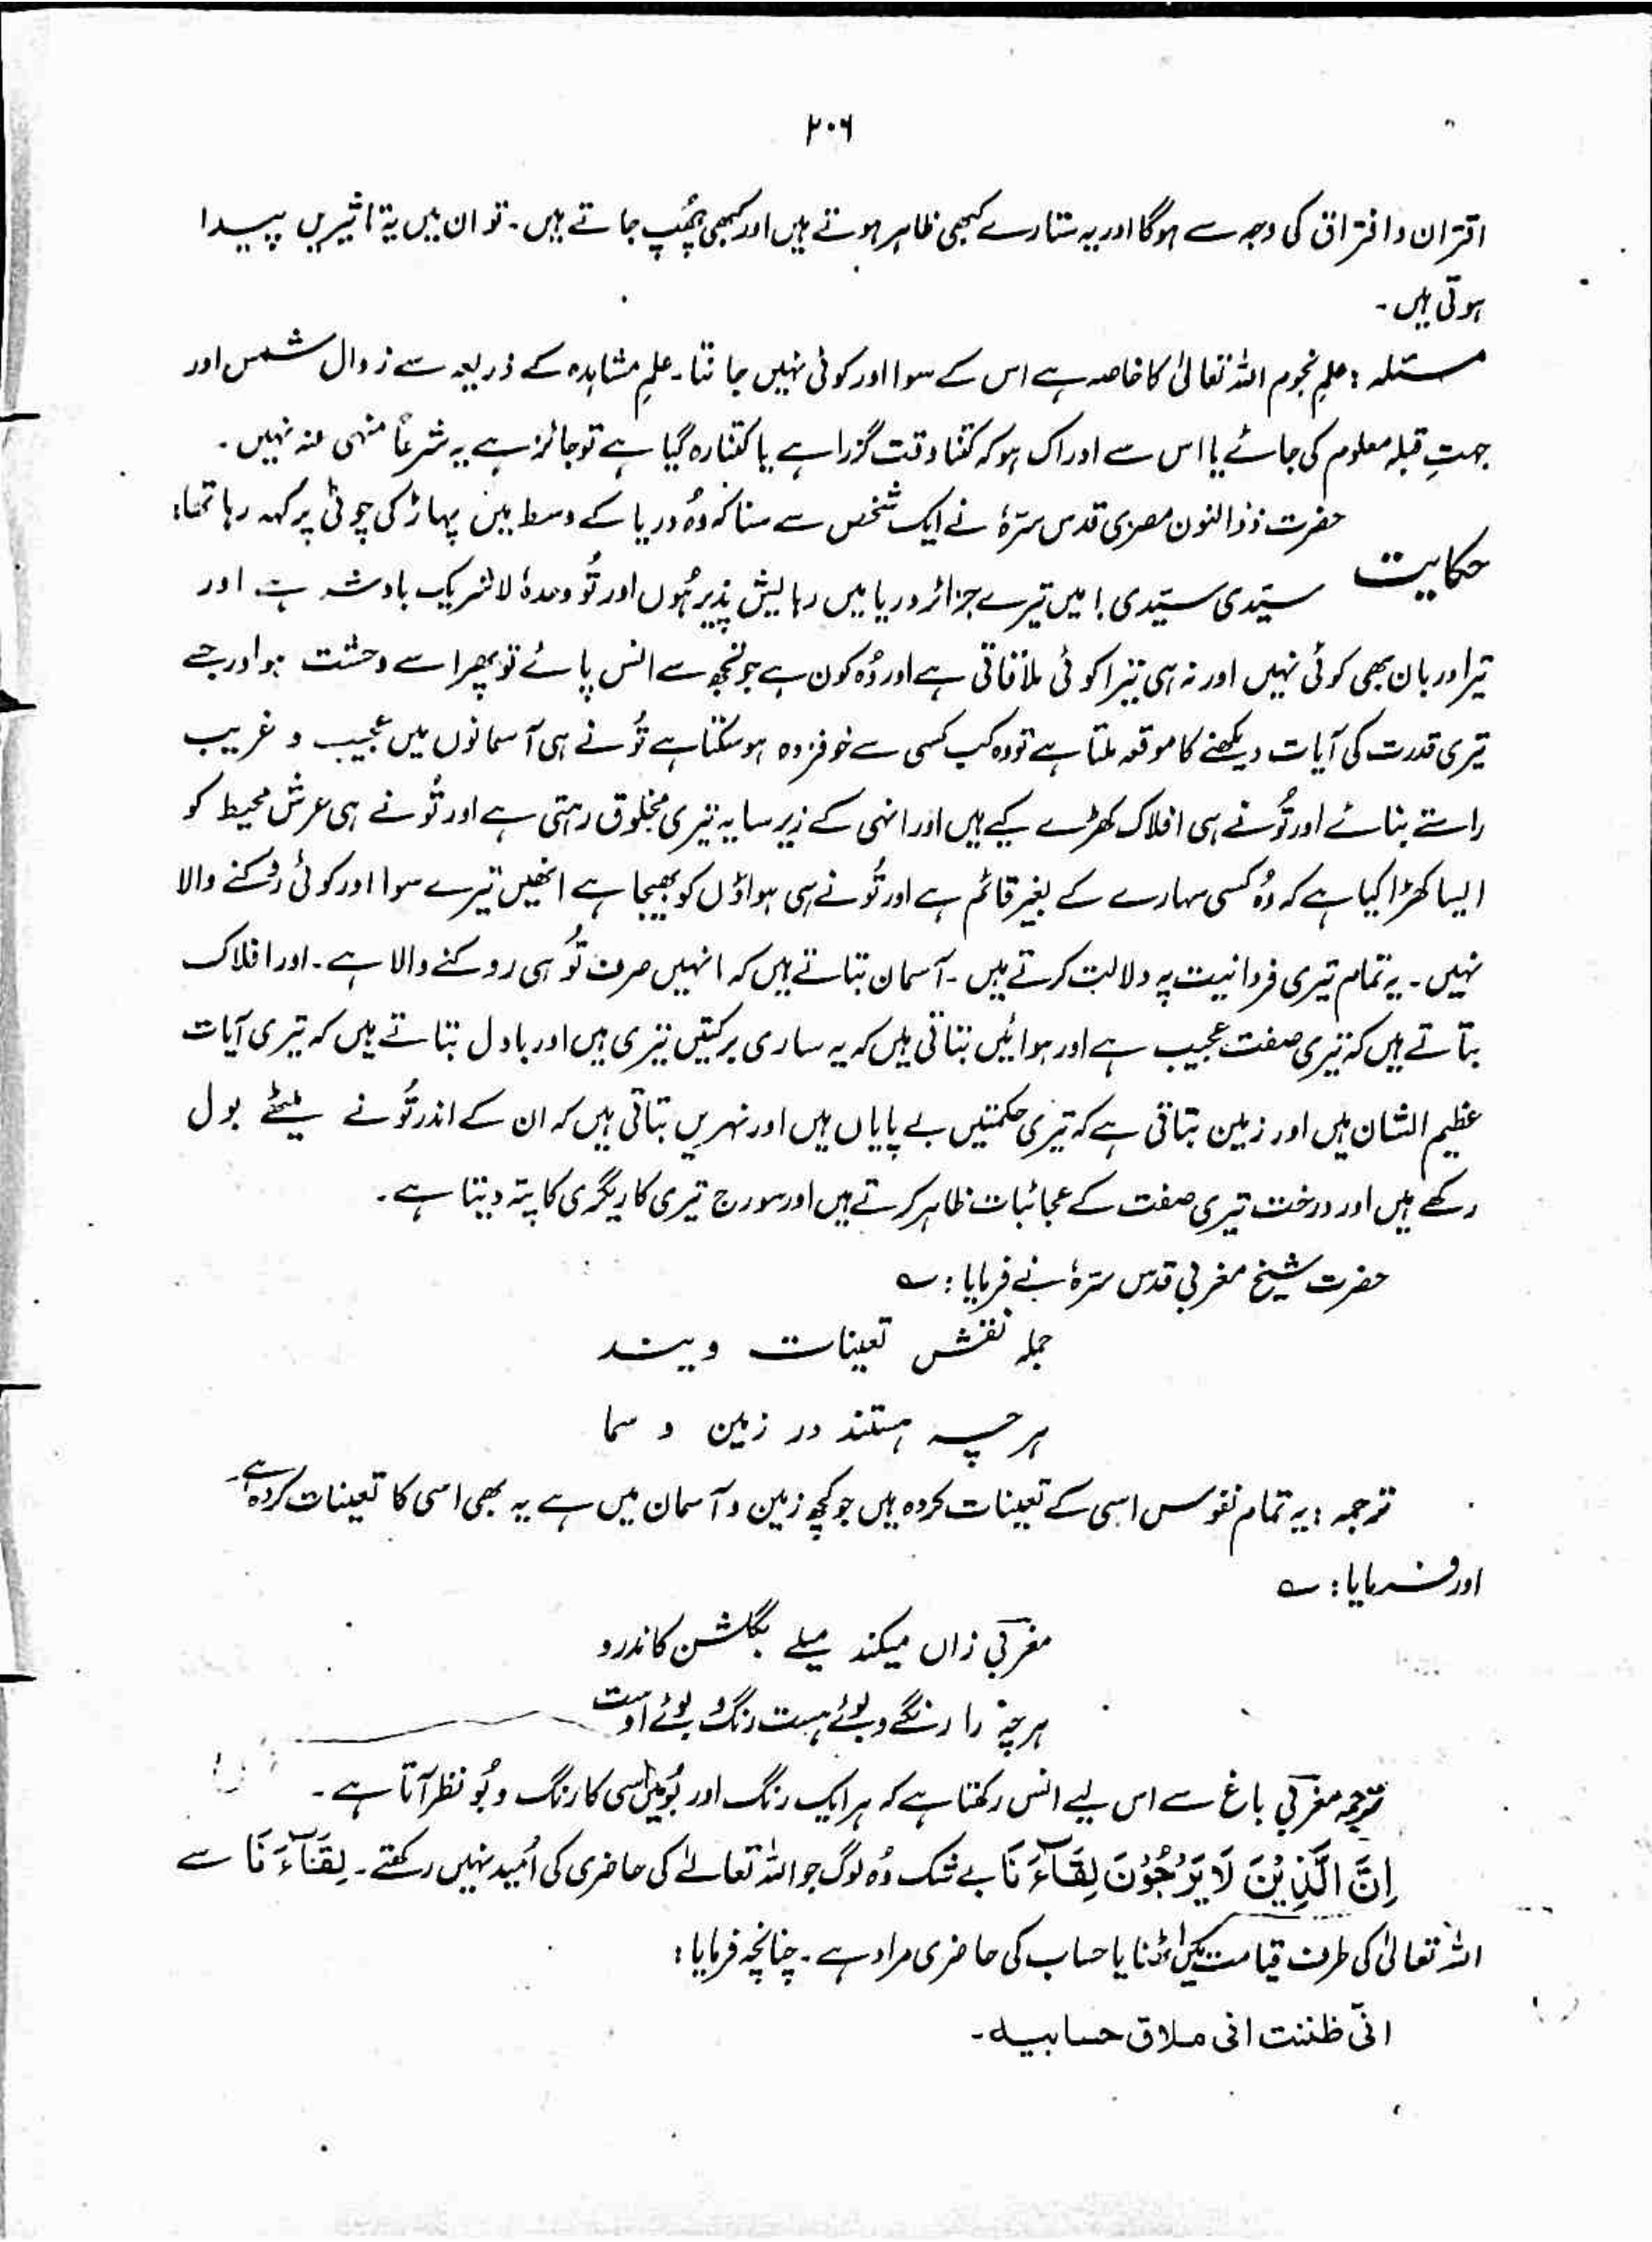 ۲۰۶
اقتران و افتراق کی وجہ سے ہوگا اور یہ ستارے کبھی ظاہر ہوتے ہیں اور کبھی چھُپ جاتے ہیں۔ تو ان میں یہ تاثیریں پیدا
ہوتی ہیں۔
مسئلہ : علمِ نجوم اللہ تعالیٰ کا خاصہ ہے اس کے سوا اور کوئی نہیں جانتا۔ علمِ مشاہدہ کے ذریعہ سے زوال شمس اور
جہتِ قبلہ معلوم کی جائے یا اس سے ادراک ہو کہ کتنا وقت گزرا ہے یا کتنا رہ گیا ہے تو جائز ہے یہ شرعاً منہی عنہ نہیں۔
حضرت ذوالنون مصری قدس سرّہٗ نے ایک شخص سے سنا کہ وُہ دریا کے وسط میں پہاڑ کی چوٹی پر کہہ رہا تھا:
حکایت سیّدی سیّدی! میں تیرے جزائر دریا میں رہایش پذیر ہُوں اور تُو وحدہٗ لاشریک بادشہ ہے اور
تیرا دربان بھی کوئی نہیں اور نہ ہی تیرا کوئی ملاقاتی ہے اور وُہ کون ہے جو تجھ سے انس پائے تو پھر اسے وحشت ہو اور جسے
تیری قدرت کی آیات دیکھنے کا موقعہ ملتا ہے تو وہ کب کسی سے خوفزدہ ہو سکتا ہے تُو نے ہی آسمانوں میں عجیب و غریب
راستے بنائے اور تُو نے ہی افلاک کھڑے کیے ہیں اور انہی کے زیر سایہ تیری مخلوق رہتی ہے اور تُو نے ہی عرش محیط کو
ایسا کھڑا کیا ہے کہ وُہ کسی سہارے کے بغیر قائم ہے اور تُو نے ہی ہواؤں کو بھیجا ہے انھیں تیرے سوا اور کوئی روکنے والا
نہیں۔ یہ تمام تیری فردانیت پہ دلالت کرتے ہیں۔ آسمان بتاتے ہیں کہ انہیں صرف تُو ہی روکنے والا ہے۔ اور افلاک
بتاتے ہیں کہ تیری صفت عجیب ہے اور ہوائیں بتاتی ہیں کہ یہ ساری برکتیں تیری ہیں اور بادل بتاتے ہیں کہ تیری آیات
عظیم الشان ہیں اور زمین بتاتی ہے کہ تیری حکمتیں بے پایاں ہیں اور نہریں بتاتی ہیں کہ ان کے اندر تُو نے میٹھے بول
رکھے ہیں اور درخت تیری صفت کے عجائبات ظاہر کرتے ہیں اور سورج تیری کاریگری کا پتہ دیتا ہے۔
حضرت شیخ مغربی قدس سرّہٗ نے فرمایا : ؎
جملہ نقش تعینات ویند
ہرچہ ہستند در زمین و سما
ترجمہ : یہ تمام نفوس اسی کے تعینات کردہ ہیں جو کچھ زمین و آسمان میں ہے یہ بھی اسی کا تعینات کردہ ہے۔
اور فرمایا : ؎
مغربی زاں میکند میلے بگلشن کاندرو
ہرچہ را رنگے و بوئے ہست رنگ و بوئے اوست
ترجمہ مغربی باغ سے اس لیے انس رکھتا ہے کہ ہر ایک رنگ اور بُو میں اسی کا رنگ و بُو نظر آتا ہے۔
اِنَّ الَّذِیْنَ لَا یَرْجُوْنَ لِقَآءَنَا بے شک وُہ لوگ جو اللہ تعالےٰ کی حاضری کی اُمید نہیں رکھتے۔ لِقَآءَنَا سے
اللہ تعالیٰ کی طرف قیامت میں اٹھنا یا حساب کی حاضری مراد ہے۔ چنانچہ فرمایا :
انّی ظننت انی ملاق حسابیہ۔